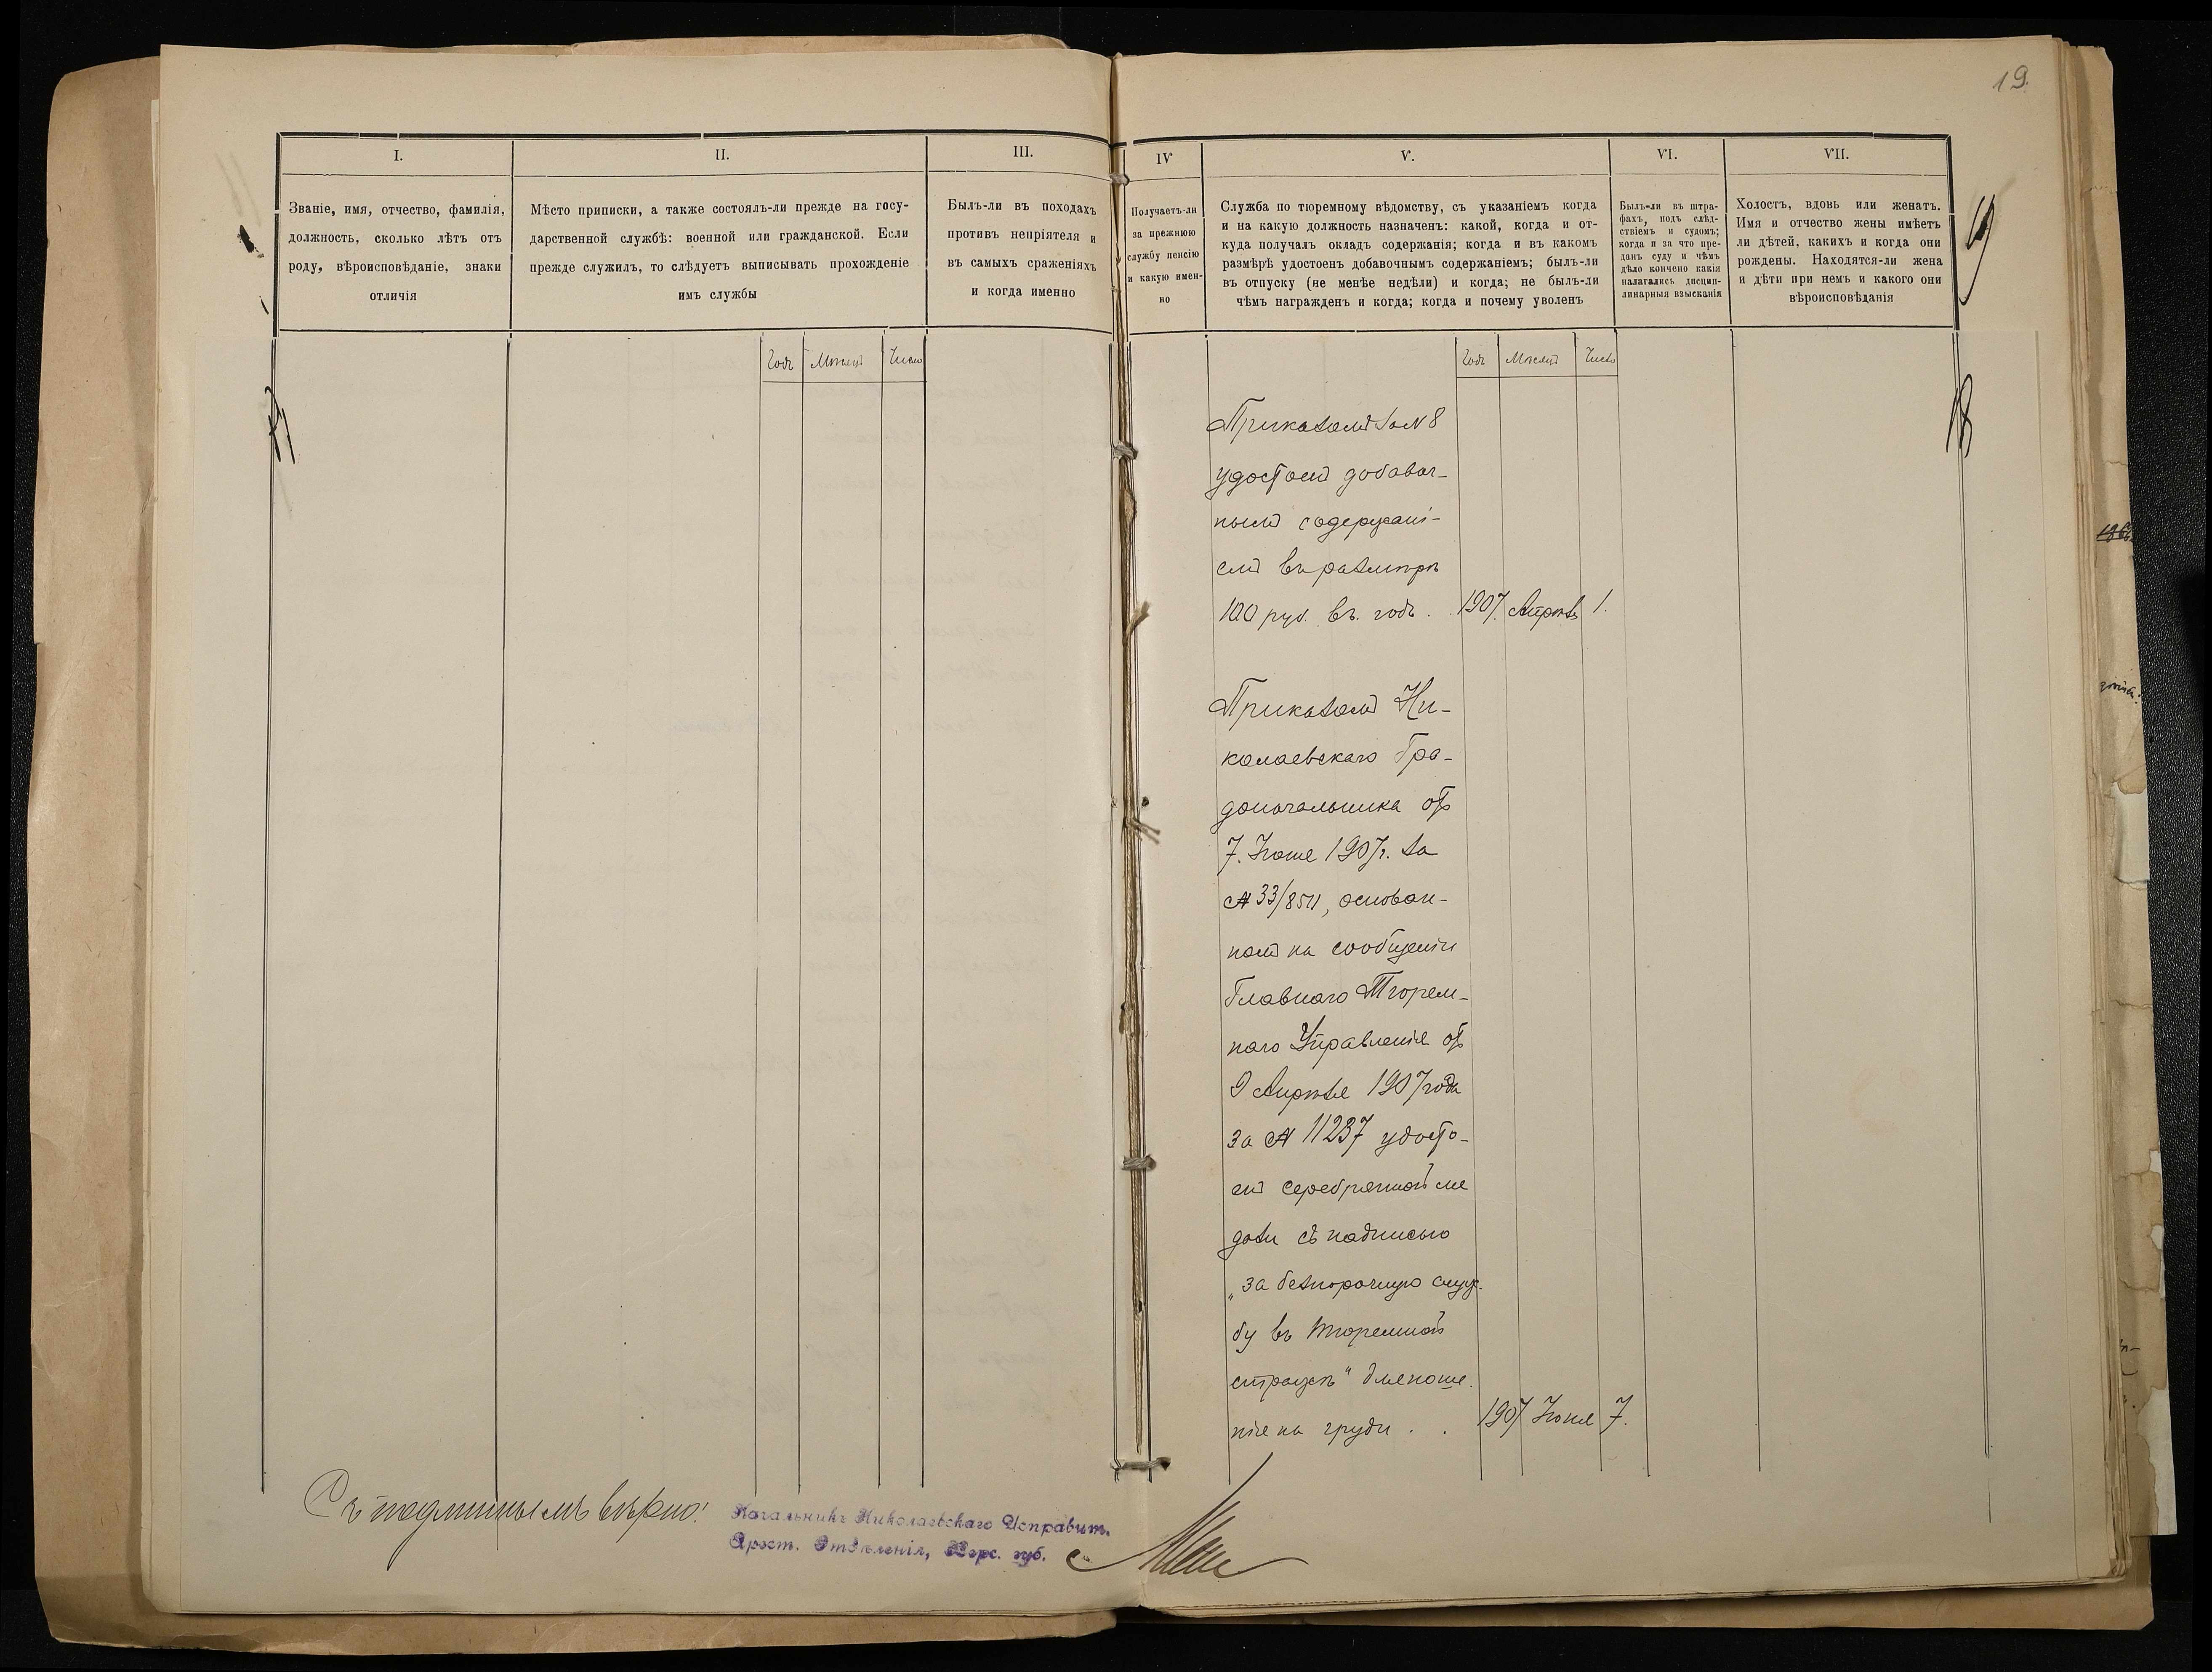 19.
I.
II.
III.
IV
V.
VI.
VII.
Званіе, имя, отчество, фамилія,
должность, сколько лѣтъ отъ
роду, вѣроисповѣданіе, знаки
отличія
Мѣсто приписки, а также состоялъ-ли прежде на госу-
дарственной службѣ: военной или гражданской. Если
прежде служилъ, то слѣдуетъ выписывать прохожденіе
имъ службы
Былъ-ли въ походахъ
противъ непріятеля и
въ самыхъ сраженіяхъ
и когда именно
Получаетъ-ли
за прежнюю
службу пенсію
и какую имен-
но
Служба по тюремному вѣдомству, съ указаніемъ когда
и на какую должность назначенъ: какой, когда и от-
куда получалъ окладъ содержанія; когда и въ какомъ
размѣрѣ удостоенъ добавочнымъ содержаніемъ; былъ-ли
въ отпуску (не менѣе недѣли) и когда; не былъ-ли
чѣмъ награжденъ и когда; когда и почему уволенъ
Былъ-ли въ штра-
фахъ, подъ слѣд-
ствіемъ и судомъ;
когда и за что пре-
данъ суду и чѣмъ
дѣло кончено какія
налагались дисцип-
линарныя взысканія
Холостъ, вдовъ или женатъ.
Имя и отчество жены имѣетъ
ли дѣтей, какихъ и когда они
рождены. Находятся-ли жена
и дѣти при немъ и какого они
вѣроисповѣданія
Годъ Мѣсяцъ Число
Годъ Мѣсяцъ Число
Приказомъ за № 8
удостоенъ добавоч-
нымъ содержані-
емъ въ размѣрѣ
100 руб. въ годъ . 1907. Апрѣль 1.
Приказомъ Ни-
колаевскаго Гра-
доначальника отъ
7. Іюня 1907г. за
№ 33/8511, основан-
номъ на сообщеніи
Главнаго Тюрем-
наго Управленія отъ
9 Апрѣля 1907 года
за № 11237 удосто-
енъ серебрянной ме
дали съ надписью
„за безпорочную служ-
бу въ тюремной
стражѣ" для ноше-
нія на груди . . 1907 Іюня 7.
Съ подлиннымъ вѣрно:
Начальникъ Николаевскаго Исправит.
Арест. Отдѣленія, Херс. губ.